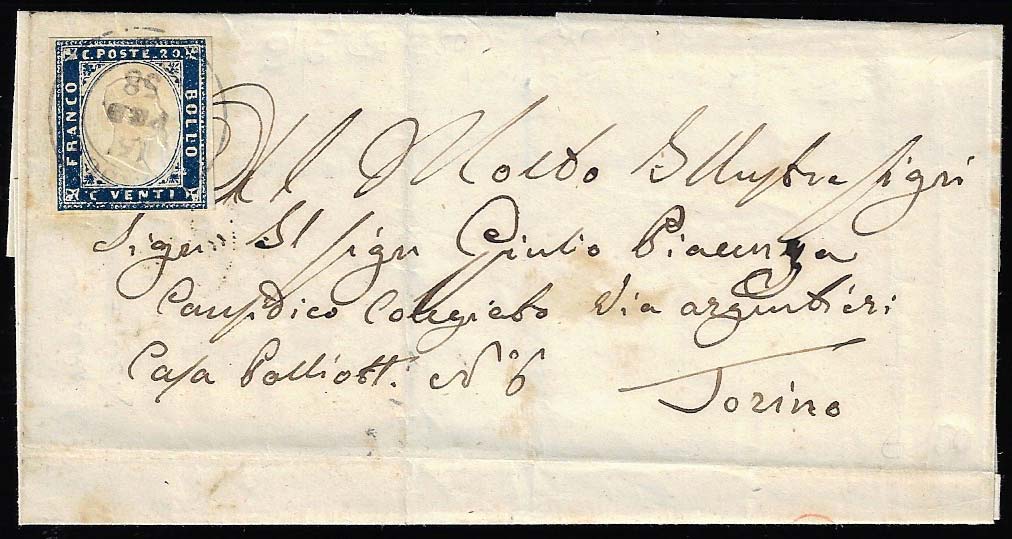 C. POSTE. 20
FRANCO
BOLLO
C VENTI
58
FEB
Al Molto Illustre Sigri
Sigri Il Sigri Giulio Piacenza
Causidico Colegiato Via argentieri
Casa Palliotti N 6
Torino